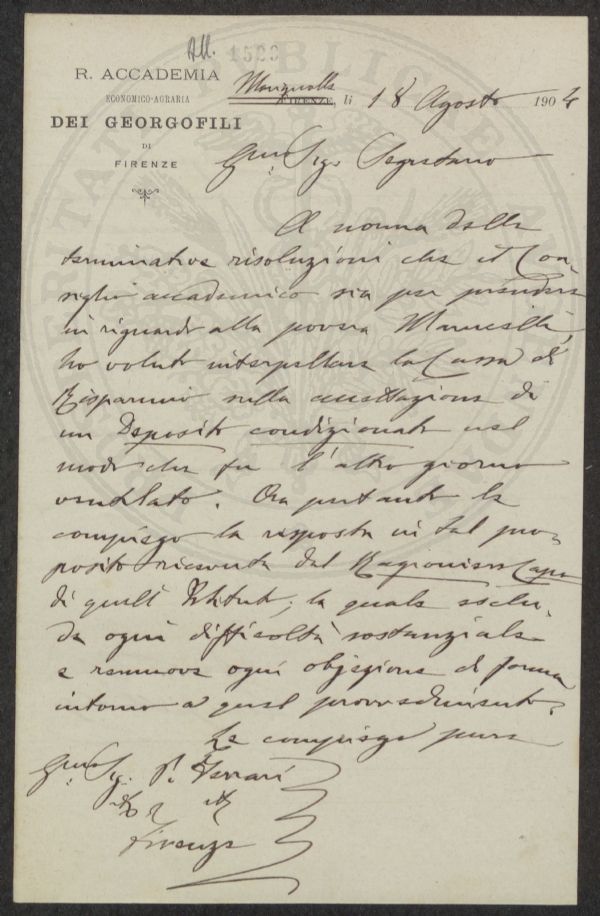 All. 1593
R. ACCADEMIA
ECONOMICO-AGRARIA
DEI GEORGOFILI
DI
FIRENZE
Marignolle
FIRENZE, li 18 Agosto 1904
Gmo Sigr Segretario
A norma delle
terminative risoluzioni che il Con
siglio accademico sia per prendere
in riguardo alla povera Marucelli,
ho voluto interpellare la Cassa di
Risparmio sulla accettazione di
un Deposito condizionato nel
modo che fu l'altro giorno
ventilato. Ora pertanto Le
compiego la risposta in tal pro=
posito ricevuta dal Ragioniere Capo
di quell' Istituto; la quale esclu
de ogni difficoltà sostanziale
e rimuove ogni objezione di forma
intorno a quel provvedimento.
Le compiego pure
Gmo Sig. P. Ferrari
Firenze